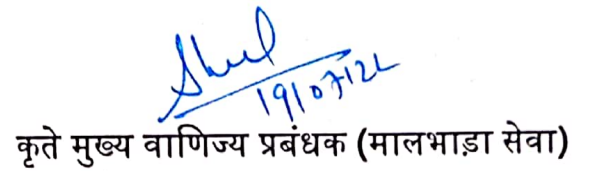 19/07/22
कृते मुख्य वाणिज्य प्रबंधक (मालभाड़ा सेवा)